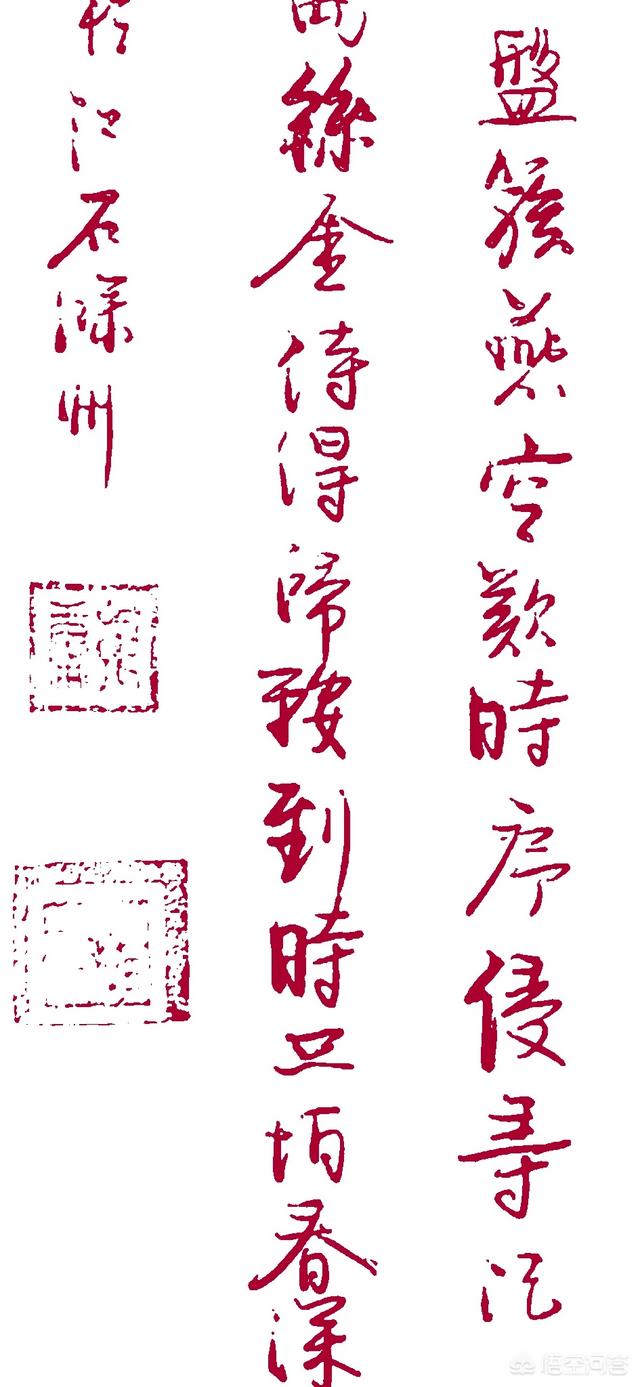 盤簇燕空歎時序侵尋記
絲金待得歸鞍到時只怕春深
江石滁州
悟空问答